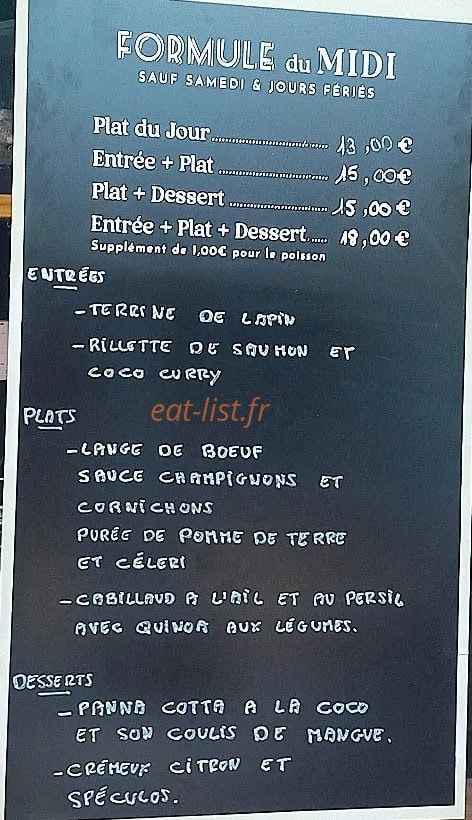 FORMULE du MIDI
SAUF SAMEDI & JOURS FÉRIÉS
Plat du Jour 13,00€
Entrée + Plat 15,00€
Plat + Dessert 15,00€
Entrée + Plat + Dessert 18,00€
Supplément de 1,00€ pour le poisson
ENTRÉES
- TERRINE DE LAPIN
- RILLETTE DE SAUMON ET
COCO CURRY
eat-list.fr
PLATS
- LANGE DE BOEUF
SAUCE CHAMPIGNONS ET
CORNICHONS
PURÉE DE POMME DE TERRE
ET CÉLERI
- CABILLAUD A L'AIL ET AU PERSIL
AVEC QUINOA AUX LÉGUMES.
DESSERTS
- PANNA COTTA A LA COCO
ET SON COULIS DE MANGUE.
- CRÉMEUX CITRON ET
SPÉCULOS.